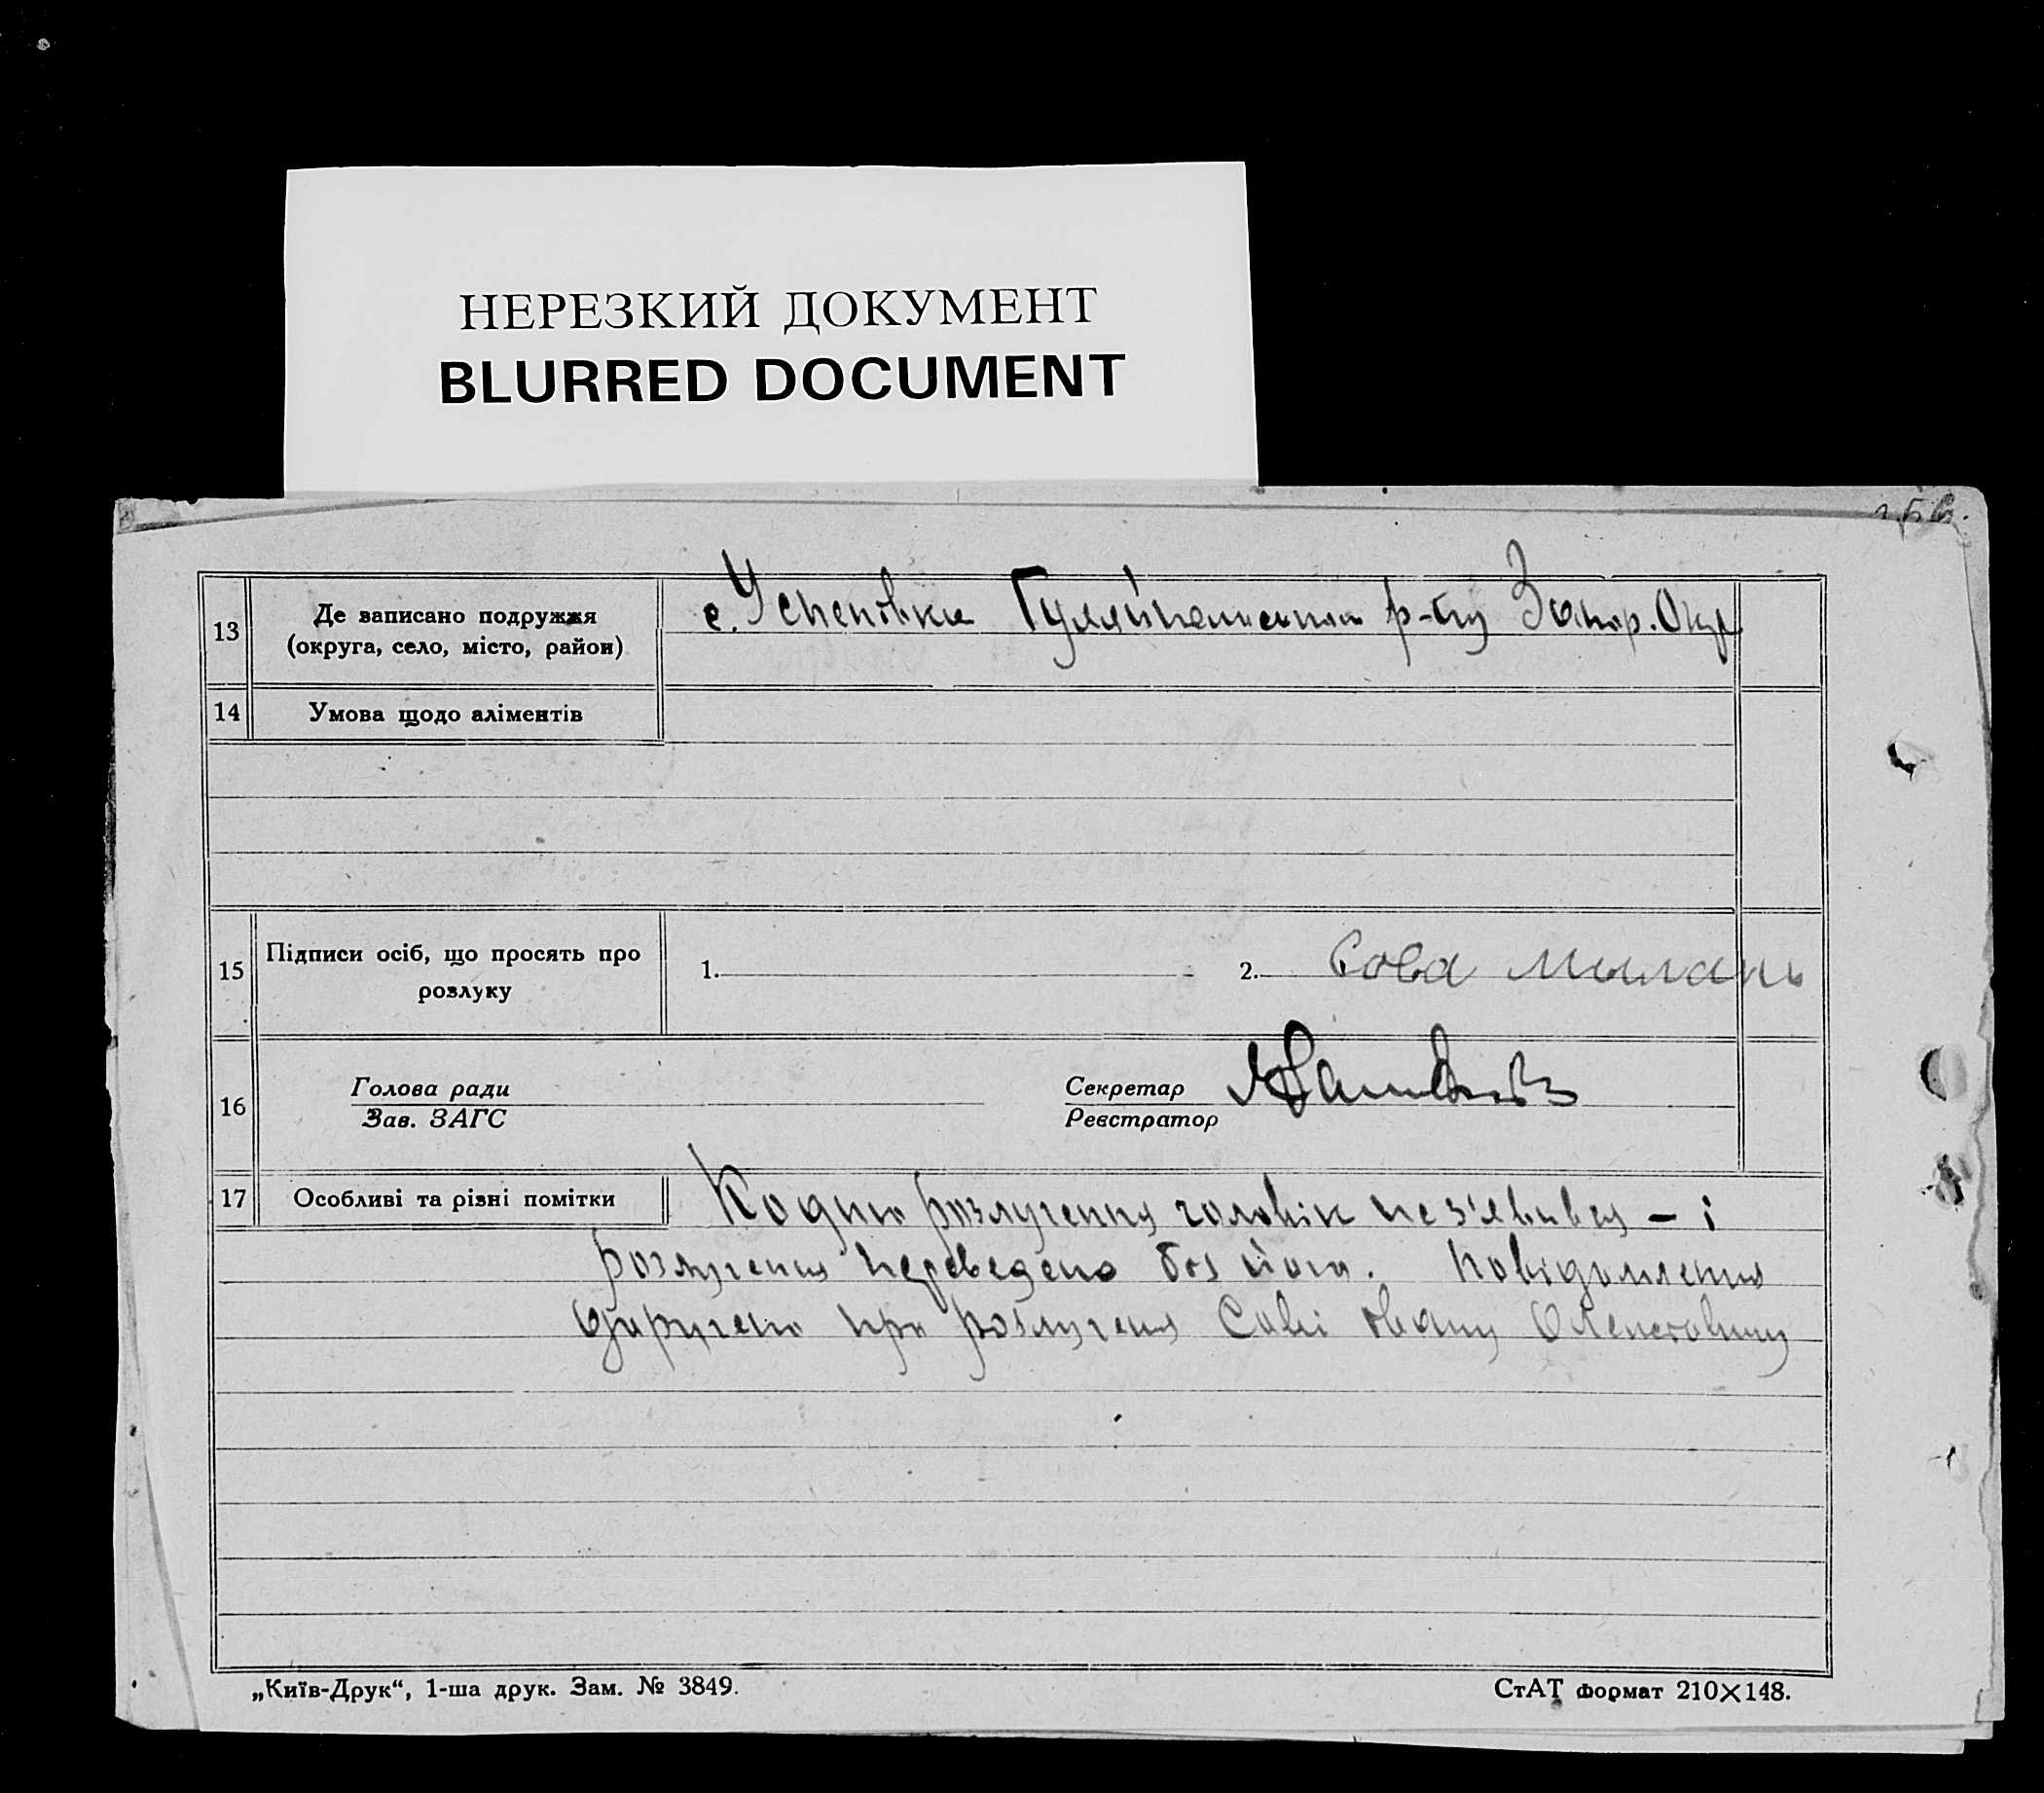 НЕРЕЗКИЙ ДОКУМЕНТ
BLURRED DOCUMENT
13
Де записано подружжя
(округа, село, місто, район)
с. Успеновка Гуляйпольського р-ну Запор. Окр
14
Умова щодо аліментів
15
Підписи осіб, що просять про
розлуку
1.
2. Сова
16
Голова ради
Зав. ЗАГС
Секретар
Реєстратор
17
Особливі та різні помітки
розлучення чоловік не з'явився – і
розлучення переведено без його. Повідомлення
про розлучення Сові Івану
„Київ-Друк“, 1-ша друк. Зам. № 3849.
СтАТ формат 210×148.